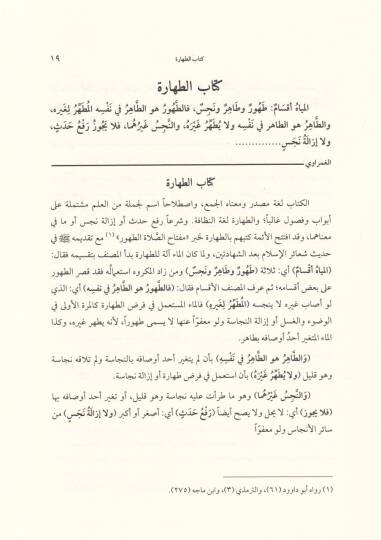 كتاب الطهارة ١٩
كتاب الطهارة
المياهُ أقسامٌ: طَهُورٌ وطَاهِرٌ ونَجِسٌ، فالطَّهُورُ هو الطَّاهِرُ في نَفْسِهِ المُطَهِّرُ لِغَيرِه،
والطَّاهِرُ هو الطاهر في نَفْسِهِ ولا يُطَهِّرُ غَيْرَهُ، والنَّجِسُ غَيرُهُما، فلا يَجُوزُ رَفْعُ حَدَثٍ،
ولا إزالَةُ نَجَسٍ..............
الغمراوي
كتاب الطهارة
الكتاب لغة مصدر ومعناه الجمع، واصطلاحاً اسم لجملة من العلم مشتملة على
أبواب وفصول غالباً؛ والطهارة لغة النظافة. وشرعاً رفع حدث أو إزالة نجس أو ما في
معناهما، وقد افتتح الأئمة كتبهم بالطهارة لخبر «مفتاح الصَّلاة الطهور» (١) مع تقديمه ﷺ في
حديث شعائر الإسلام بعد الشهادتين، ولما كان الماء آلة للطهارة بدأ المصنف بتقسيمه فقال:
(المياهُ أقسامٌ) أي: ثلاثة (طَهُورٌ وطَاهِرٌ ونَجِسٌ) ومن زاد المكروه استعمالُه فقد قصر الطهور
على بعض أقسامه؛ ثم عرف المصنف الأقسام فقال: (فالطَّهُورُ هو الطَّاهِرُ في نفسِه) أي: الذي
لو أصاب غيره لا ينجسه (المُطَهِّرُ لِغَيرِه) فالماء المستعمل في فرض الطهارة كالمرة الأولى في
الوضوء والغسل أو إزالة النجاسة ولو معفوّاً عنها لا يسمى طهوراً، لأنه يطهر غيره، وكذا
الماء المتغير أحدُ أوصافه بطاهر.
(وَالطَّاهِرُ هو الطَّاهِرُ في نَفْسِهِ) بأن لم يتغير أحد أوصافه بالنجاسة ولم تلاقه نجاسة
وهو قليل (ولا يُطَهِّرُ غَيْرَهُ) بأن استعمل في فرض طهارة أو إزالة نجاسة.
(وَالنَّجِسُ غَيْرُهُما) وهو ما طرأت عليه نجاسة وهو قليل، أو تغير أحد أوصافه بها
(فلا يجوز) أي: لا يحل ولا يصح أيضاً (رَفْعُ حَدَثٍ) أي: أصغر أو أكبر (ولا إزالةُ نَجَسٍ) من
سائر الأنجاس ولو معفوّاً
(١) رواه أبو داوود (٦١)، والترمذي (٣)، وابن ماجه (٢٧٥).